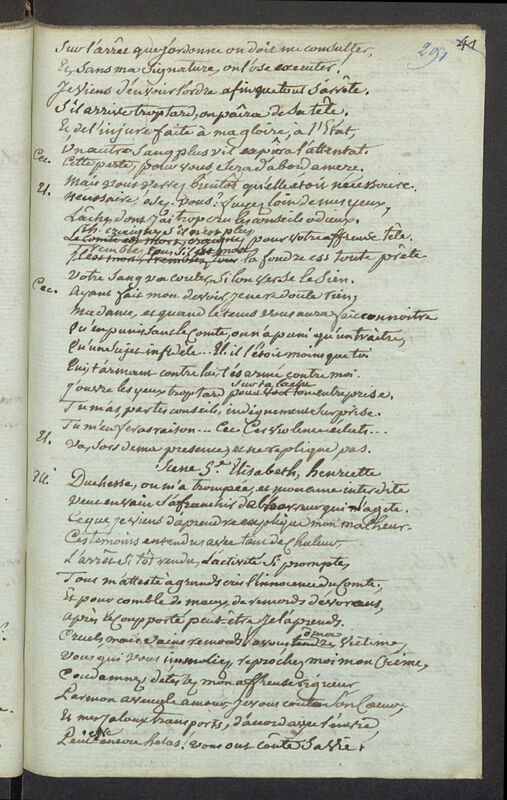 291 41
Sur l'arrêt que j'ordonne on doit me consulter,
Et sans ma signature, on l'ose executer.
Je viens d'envoier l'ordre afin que tout s'arrête.
S'il arrive trop tard, on paîra de sa tête.
Et de l'injure faite à ma gloire, à l'Etat,
Un autre sang plus vil expîra l'attentat.
Cec. Cette perte, pour vous, sera d'abord amere.
Mais vous verrez bientôt qu'elle etoit nécessaire.
El. Necessaire, osez-vous? fuyez loin de mes yeux,
Lâche, dont j'ai trop cru les conseils odieux.
Ah, craignez s'il n'est plus
Le comte est mort, craignez, pour votre affreuse tête.
Tremblez, s'il est mort
Il est mort, tremblez, la foudre est toute prête.
Votre sang va couler, si l'on verse le sien.
Cec. Ayant fait mon devoir, je ne redoute rien,
Madame, et quand le tems vous aura fait connoitre
Qu'en punissant le Comte, on n'a puni qu'un traître,
Qu'un sujet infidele... El. il l'étoit moins que toi
Qui, t'armant contre lui, t'es armé contre moi.
J'ouvre les yeux trop tard sur ta lâche entreprise.
Tu m'as, par tes conseils, indignement surprise.
Tu m'en feras raison... Cec. Ces violences éclats...
El. Va, sors de ma presence, et ne replique pas.
Scene 5.e Elisabeth, henriette
El. Duchesse, on m'a trompée, et mon ame interdite
Veut en vain s'affranchir de l'horreur qui m'agite.
Ce que je viens d'aprendre explique mon malheur.
Ces temoins entendus avec tant de chaleur
L'arrêt si tôt rendu, l'activité si prompte,
Tous m'atteste a grands cris l'innocence du Comte;
Et pour comble de maux, de remords dévorans,
Après le coup porté peut-être je l'aprends.
Cruels, mais vains remords! a vous tendre victime,
Vous qui vous immoliez, reprochez moi mon crime,
Condamnez, detestez mon affreuse rigueur
Par mon aveugle amour, je vous coute son coeur,
Et mes jaloux transports, d'accord avec l'envie
Peut-être encore helas! vous ont coûté sa vie.